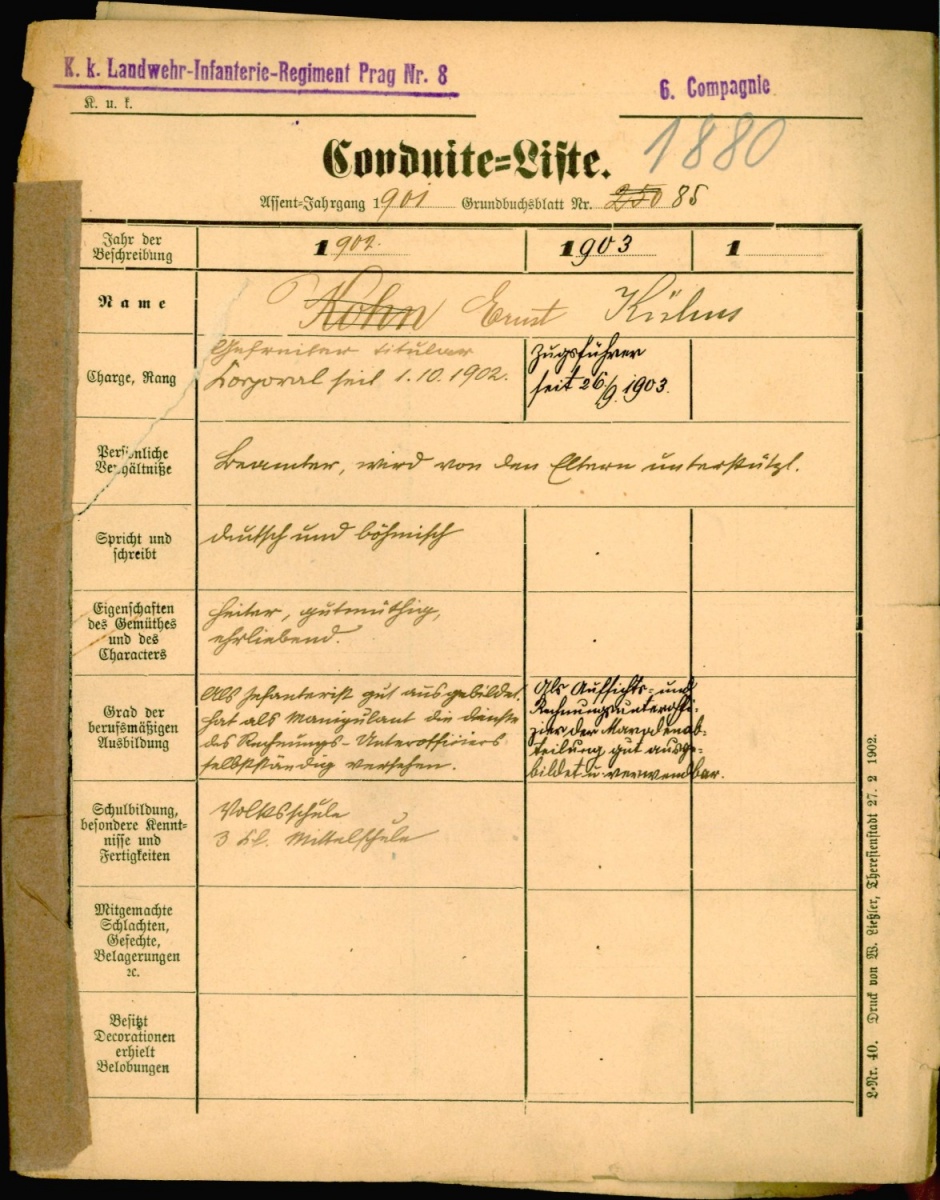 K. k. Landwehr-Infanterie-Regiment Prag Nr. 8
6. Compagnie
K. u. k.
1880
Conduite=Liste.
Assent=Jahrgang 1901 Grundbuchsblatt Nr. 250 85
Jahr der
Beschreibung
1902.
1903
1
Name
Kohn Ernst
Charge, Rang
Gefreiter titular
Korporal seit 1.10.1902.
Zugsführer
seit 26/9. 1903.
Persönliche
Verhältniße
Beamter, wird von den Eltern unterstützt.
Spricht und
schreibt
deutsch und böhmisch
Eigenschaften
des Gemüthes
und des
Characters
heiter, gutmüthig,
ehrliebend.
Grad der
berufsmäßigen
Ausbildung
Als Infanterist gut ausgebildet
hat als Manipulant die Dienste
des Rechnungs-Unterofficiers
selbstständig versehen.
Als Aufsichts- und
Rechnungsunteroffi-
zier der
teilung gut ausge-
bildet u verwendbar.
Schulbildung,
besondere Kennt=
nisse und
Fertigkeiten
Volksschule
3 Kl. Mittelschule
Mitgemachte
Schlachten,
Gefechte,
Belagerungen
ꝛc.
Besitzt
Decorationen
erhielt
Belobungen
L=Nr. 40. Druck von W. Ließler, Theresienstadt 27. 2 1902.